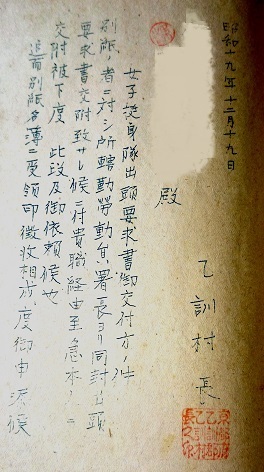 昭和十九年十二月十九日
乙訓村長
殿
女子挺身隊出頭要求書御交付方ノ件
別紙ノ者ニ対シ所轄勤労動員署長ヨリ同封出頭
要求書交附致サレ候ニ付貴職経由至急本人ニ
交附被下度 此段及御依頼候也
追而別紙名簿ニ受領印徴收相成度御申添候